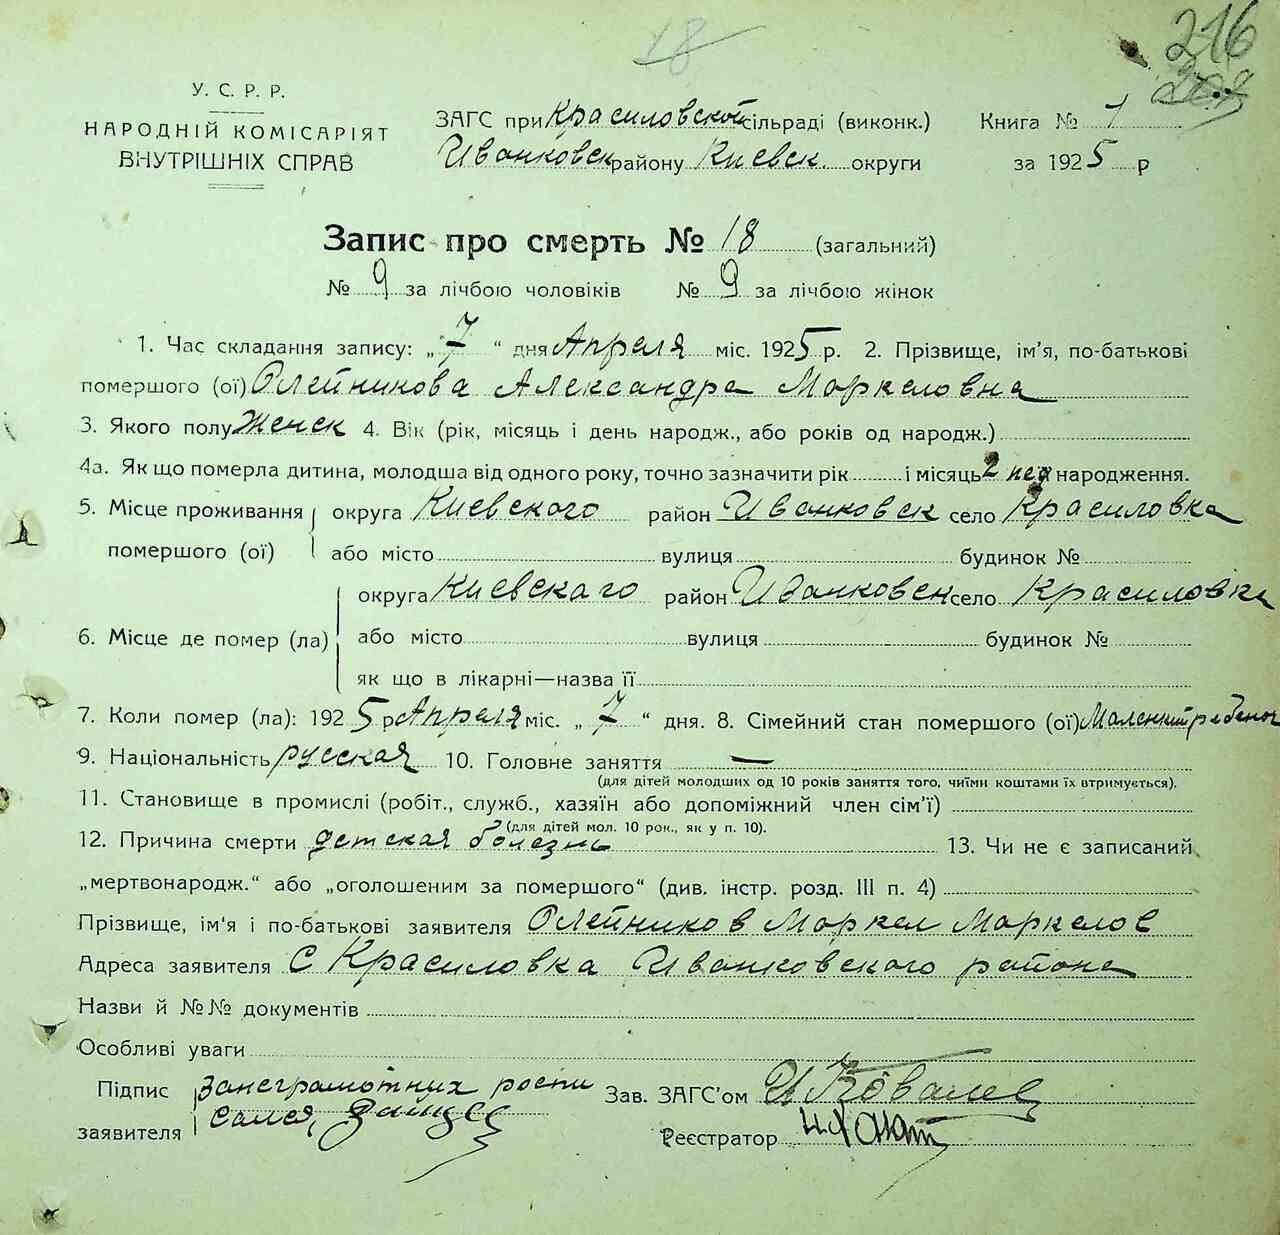 18
216
У. С. Р. Р.
НАРОДНІЙ КОМІСАРІЯТ
ВНУТРІШНІХ СПРАВ
ЗАГС при Красиловской сільраді (виконк.) Книга № 1
Иванковск району Киевск. округи за 1925 р
Запис про смерть № 18 (загальний)
№ 9 за лічбою чоловіків № 9 за лічбою жінок
1. Час складання запису: „7“ дня Апреля міс. 1925 р. 2. Прізвище, ім'я, по-батькові
помершого (ої) Олейникова Александра Маркеловна
3. Якого полу Женск 4. Вік (рік, місяць і день народж., або років од народж.)
4а. Як що померла дитина, молодша від одного року, точно зазначити рік і місяць 2 нед народження.
5. Місце проживання округа Киевского район Иванковск село Красиловка
помершого (ої) або місто вулиця будинок №
округа Киевскаго район Иванковск село Красиловка
6. Місце де помер (ла) або місто вулиця будинок №
як що в лікарні—назва її
7. Коли помер (ла): 1925 р Апреля міс. „7“ дня. 8. Сімейний стан помершого (ої) Маленкий ребенок
9. Національність русская 10. Головне заняття —
(для дітей молодших од 10 років заняття того, чиїми коштами їх втримується).
11. Становище в промислі (робіт., служб., хазяїн або допоміжний член сім'ї)
(для дітей мол. 10 рок., як у п. 10).
12. Причина смерти детская болезнь 13. Чи не є записаний
„мертвонародж.“ або „оголошеним за помершого“ (див. інстр. розд. III п. 4)
Прізвище, ім'я і по-батькові заявителя Олейников Маркел Маркелов
Адреса заявителя С Красиловка Иванковского района
Назви й №№ документів
Особливі уваги
Підпис за неграмотних роспи Зав. ЗАГС'ом И Ковалев
заявителя Реєстратор